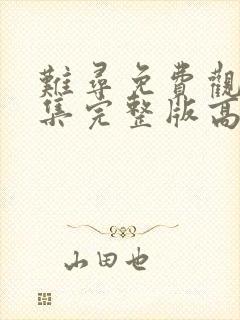 難尋免費觀
集完整版高
山田也